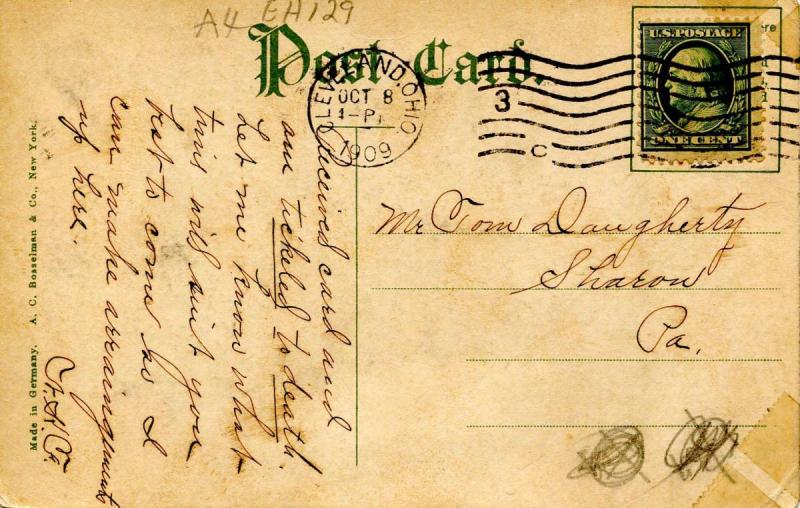 A4 EH129
Post Card.
CLEVELAND, OHIO
OCT 8
1909
3
C
U.S. POSTAGE
ONE CENT
Mr Tom Daugherty
Sharon
Pa.
Received card and
am tickled to death.
Let me know what
time will suit you
best to come so I
can make arraingments
up here.
Made in Germany. A. C. Bosselman & Co., New York.